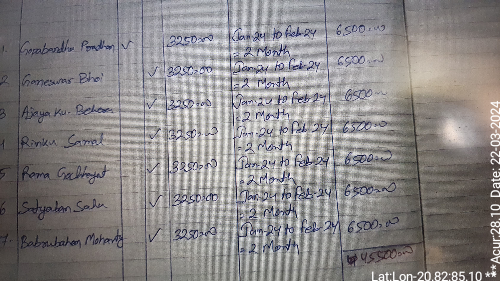 1. Gopabandhu Pradhan ✓ 3250=00 Jan-24 to Feb-24 6500=00
= 2 Month
2 Ganeswar Bhoi ✓ 3250=00 Jan-24 to Feb-24 6500=00
= 2 Month
3 Ajaya Ku. Behera ✓ 3250=00 Jan-24 to Feb-24 6500=00
= 2 Month
4 Rinku Samal ✓ 3250=00 Jan-24 to Feb-24 6500=00
= 2 Month
5 Rama ✓ 3250=00 Jan-24 to Feb-24 6500=00
= 2 Month
6 Satyaban Sahu ✓ 3250=00 Jan-24 to Feb-24 6500=00
= 2 Month
7. Babrubahan Mohanty ✓ 3250=00 Jan-24 to Feb-24 6500=00
= 2 Month
45500=00
Lat:Lon-20.82:85.10 ***Agur:28.10 Date:22-03-2024